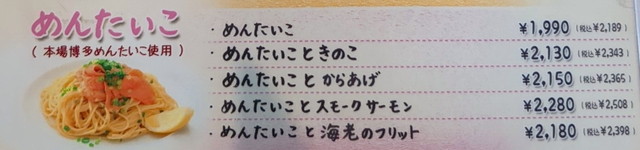 めんたいこ
(本場博多めんたいこ使用)
・めんたいこ ¥1,990 (税込¥2,189)
・めんたいこときのこ ¥2,130 (税込¥2,343)
・めんたいことからあげ ¥2,150 (税込¥2,365)
・めんたいことスモークサーモン ¥2,280 (税込¥2,508)
・めんたいこと海老のフリット ¥2,180 (税込¥2,398)